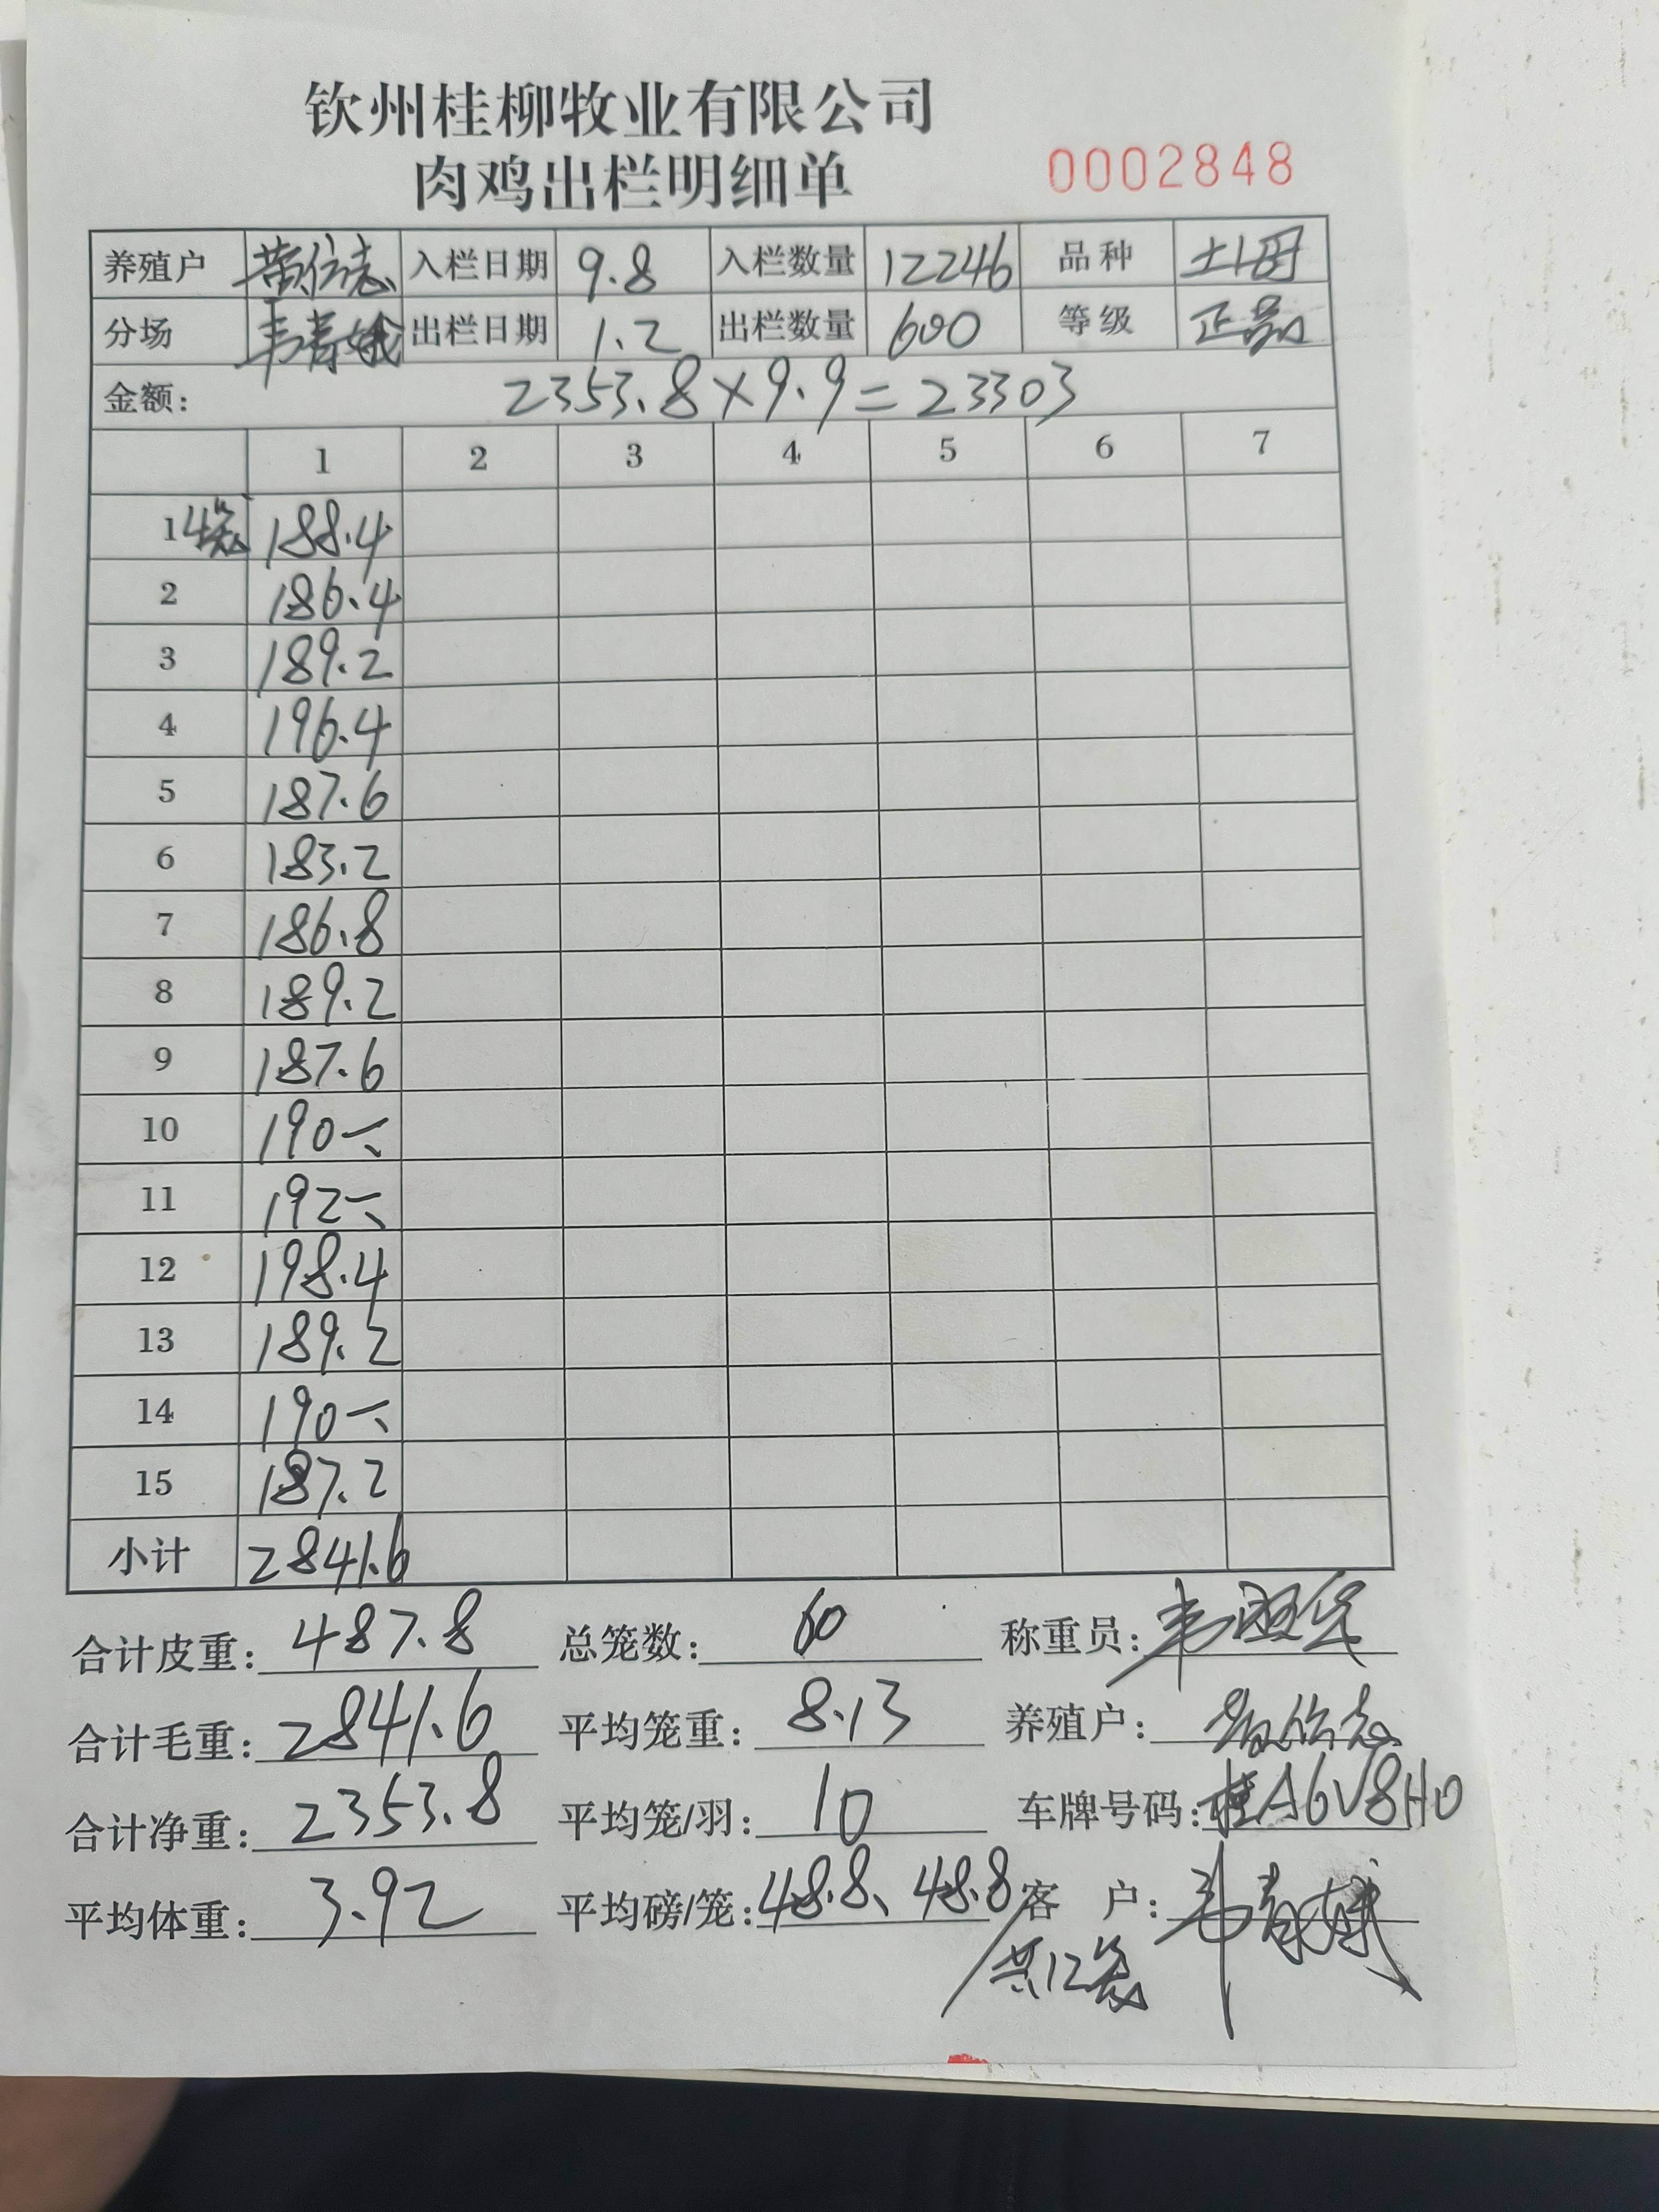 钦州桂柳牧业有限公司
肉鸡出栏明细单 0002848
养殖户 黄信志 入栏日期 9.8 入栏数量 12246 品种 土1母
分场 韦青娥 出栏日期 1.2 出栏数量 600 等级 正品
金额: 2353.8×9.9=23303
1 2 3 4 5 6 7
1 4笼 188.4
2 186.4
3 189.2
4 196.4
5 187.6
6 183.2
7 186.8
8 189.2
9 187.6
10 190
11 192
12 198.4
13 189.2
14 190
15 187.2
小计 2841.6
合计皮重: 487.8 总笼数: 60 称重员:
合计毛重: 2841.6 平均笼重: 8.13 养殖户: 黄信志
合计净重: 2353.8 平均笼/羽: 10 车牌号码: 桂A6V8H0
平均体重: 3.92 平均磅/笼: 48.8、48.8 客户: 韦青娥
共12笼